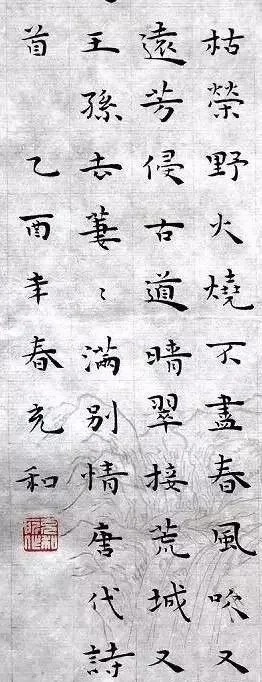 枯榮野火燒不盡春風吹又
遠芳侵古道晴翠接荒城又
王孫去萋〻滿別情唐代詩
首乙酉年春充和